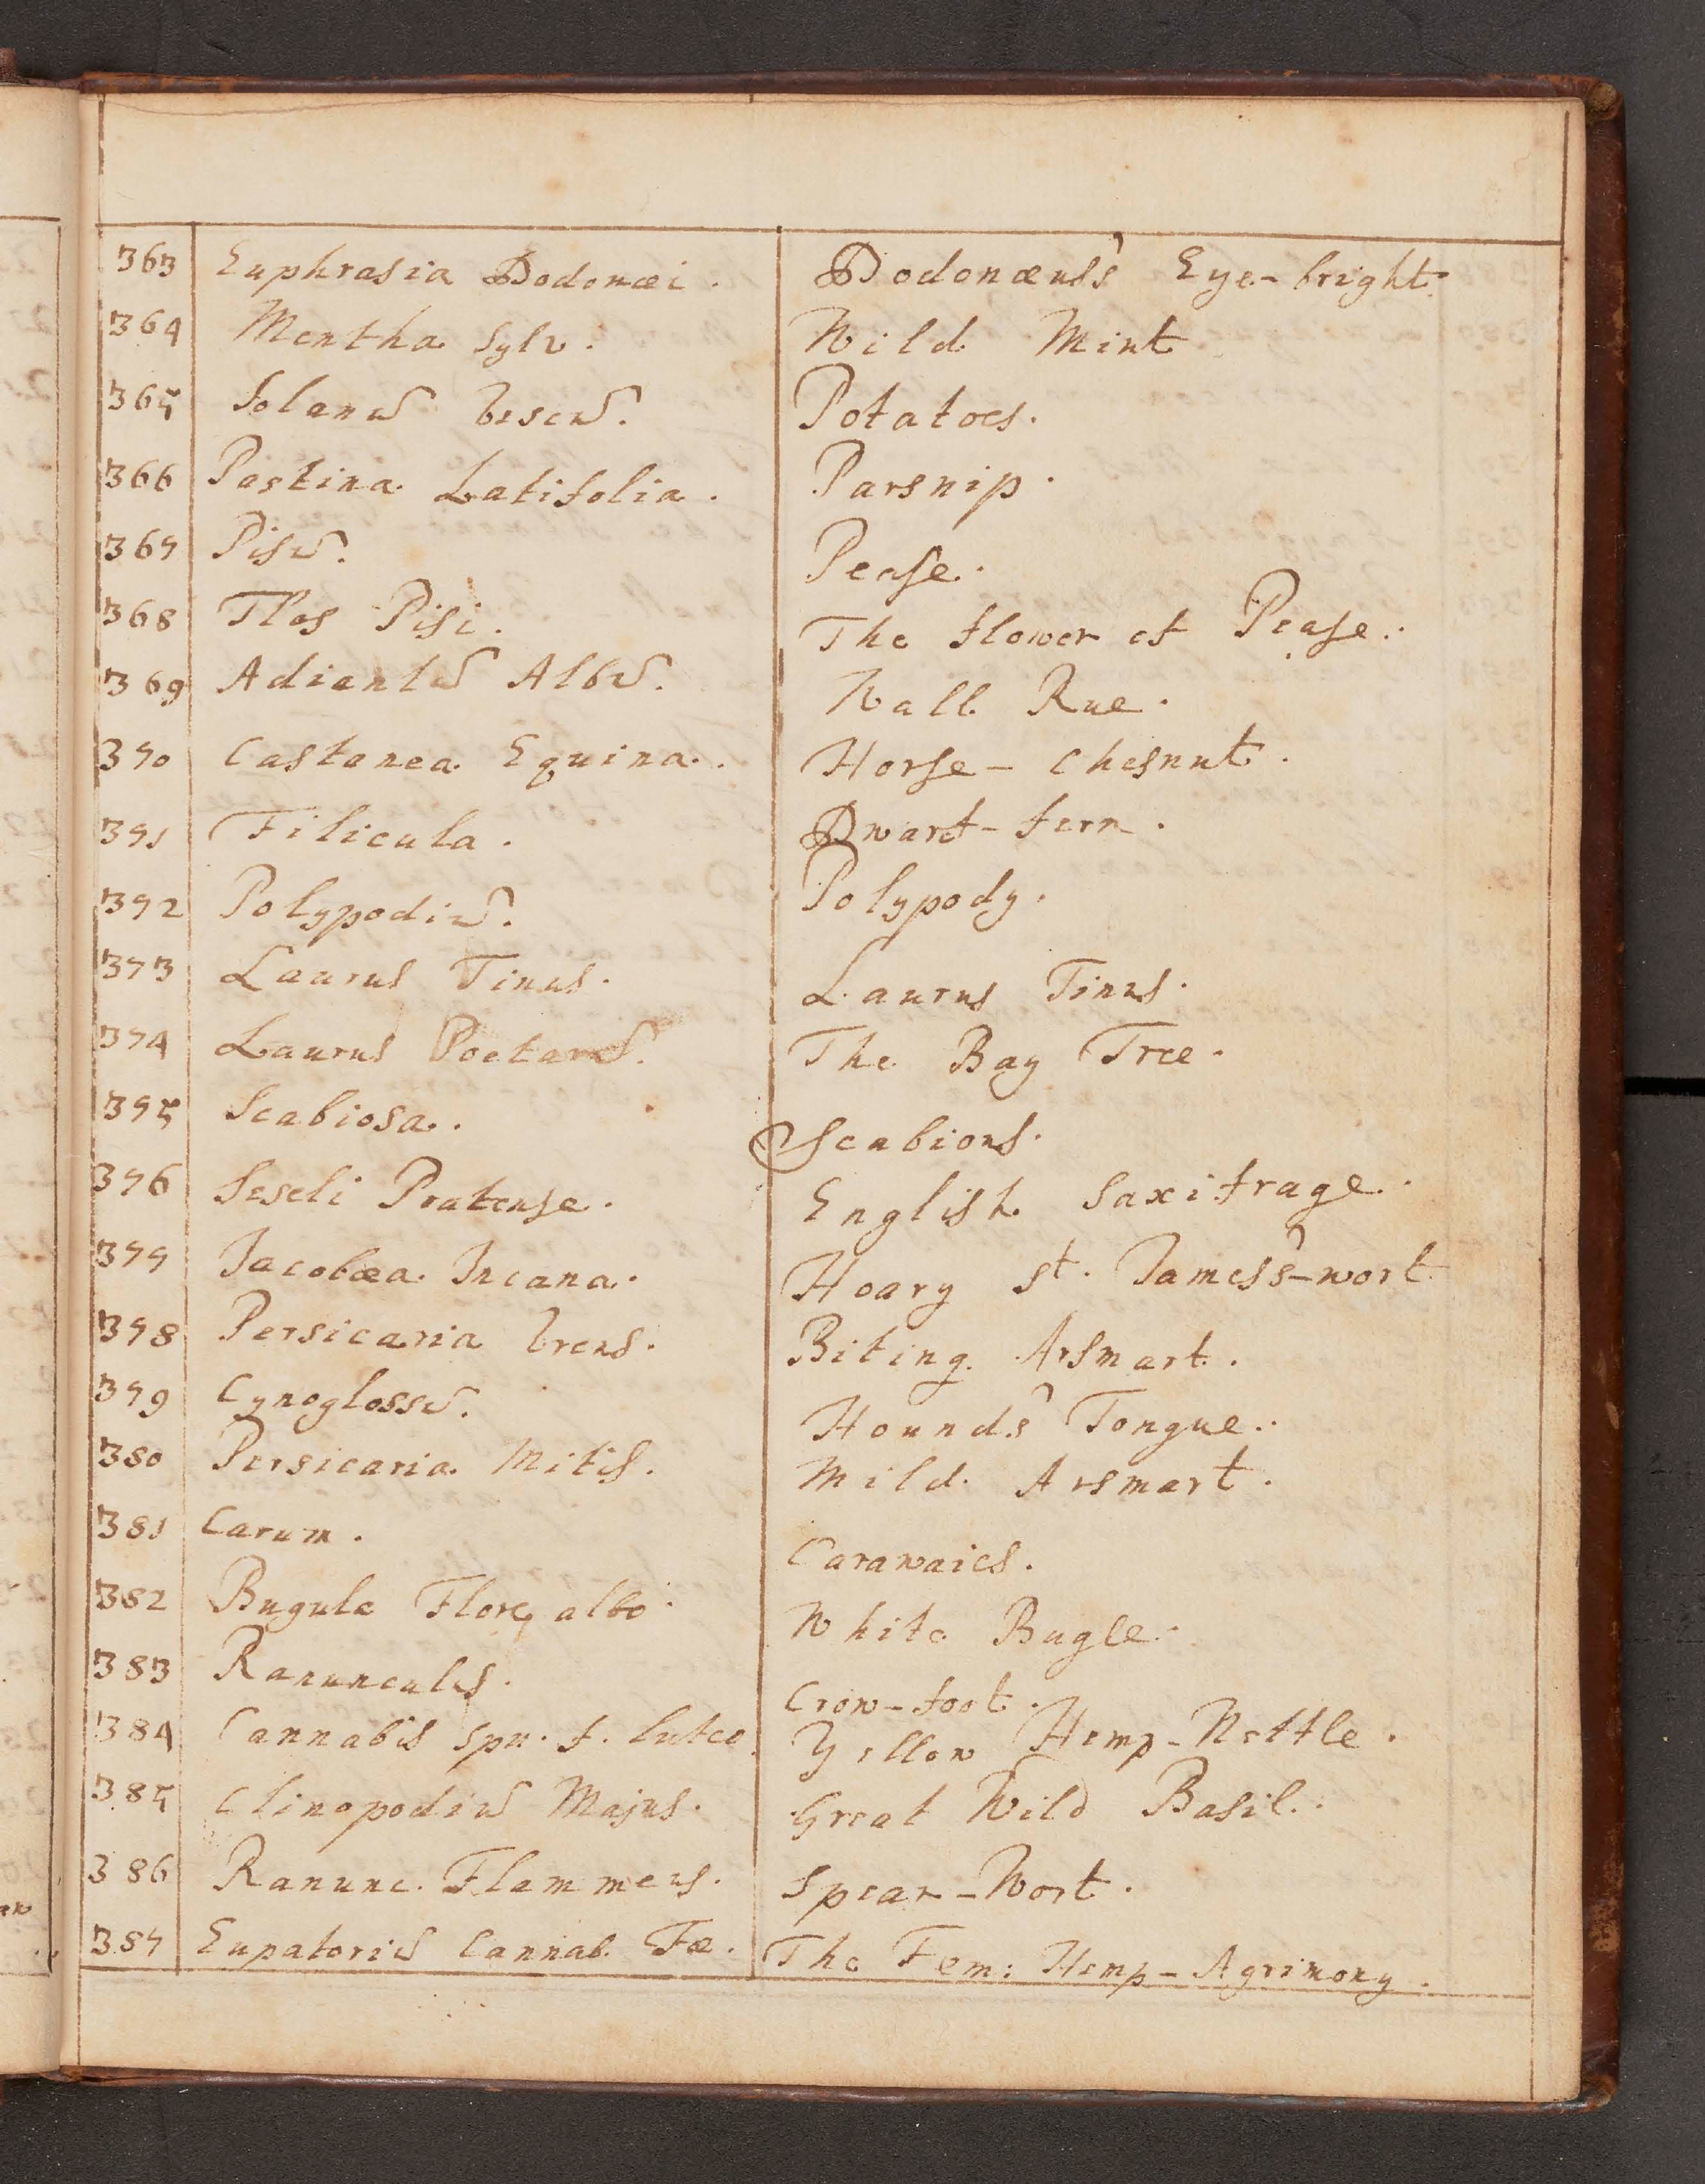 363 Euphrasia Dodonæi. Dodonæus's Eye-bright
364 Mentha Sylv. Wild Mint
365 Solanū Escū. Potatoes.
366 Pastina Latifolia. Parsnip.
367 Pisū. Pease.
368 Flos Pisi. The flower of Pease.
369 Adiantū Albū. Wall Rue.
370 Castanea Equina. Horse-Chesnut.
371 Filicula. Dwarf-fern.
372 Polypodiū. Polypody.
373 Laurus Tinus. Laurus Tinus.
374 Laurus Poetarū. The Bay Tree.
375 Scabiosa. Scabious.
376 Seseli Pratense. English Saxifrage.
377 Jacobæa Incana. Hoary St. James's-wort
378 Persicaria Urens. Biting Arsmart.
379 Cynoglossū. Hound's Tongue.
380 Persicaria Mitis. Mild Arsmart.
381 Carum. Carawaies.
382 Bugula Flore albo. White Bugle.
383 Ranunculus. Crow-foot.
384 Cannabis spu. f. luteo. Yellow Hemp-Nettle.
385 Clinopodiū Majus. Great Wild Basil.
386 Ranunc. Flammeus. Spear-Wort.
387 Eupatoriū Cannab. Fœ. The Fem: Hemp-Agrimony.